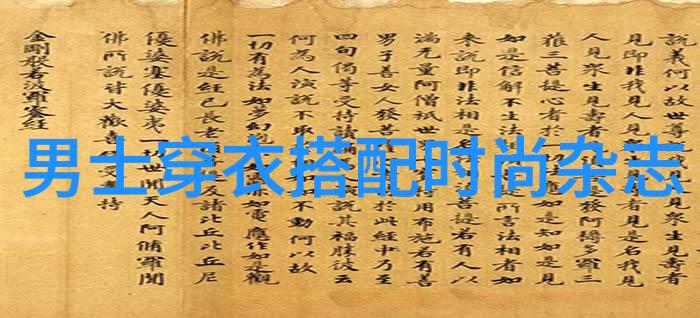 說義何以故世尊見眾生見壽者
見即非我見人見眾生見是名我見
人見眾生見壽者發阿耨多羅三
藐三菩提心者於一應如是知如是見
如是信解不生法相所言法相者如
來說即非法相是名菩提若有人以
滿无量阿僧祇世用布施若有善
男子善女人發菩於此經乃至
四句偈等受持讀誦演說其福勝彼云
何為人演說不取不動何以故
一切有為法如夢幻如電應作如是觀
佛說是經已長老及諸比丘比丘尼
優婆塞優婆夷一切世間天人阿脩羅聞
佛所說皆大歡喜信受奉持
金剛般若波羅蜜經
男士穿衣搭配时尚杂志